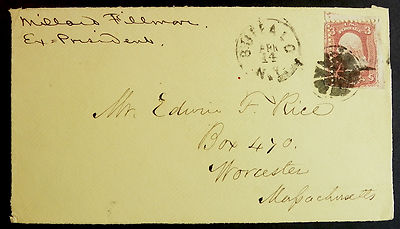 Millard Fillmore
Ex-President.
BUFFALO
APR
14
N.Y.
3 3
U S
Mr. Edwin F. Rice
Box 470.
Worcester
Massachusetts